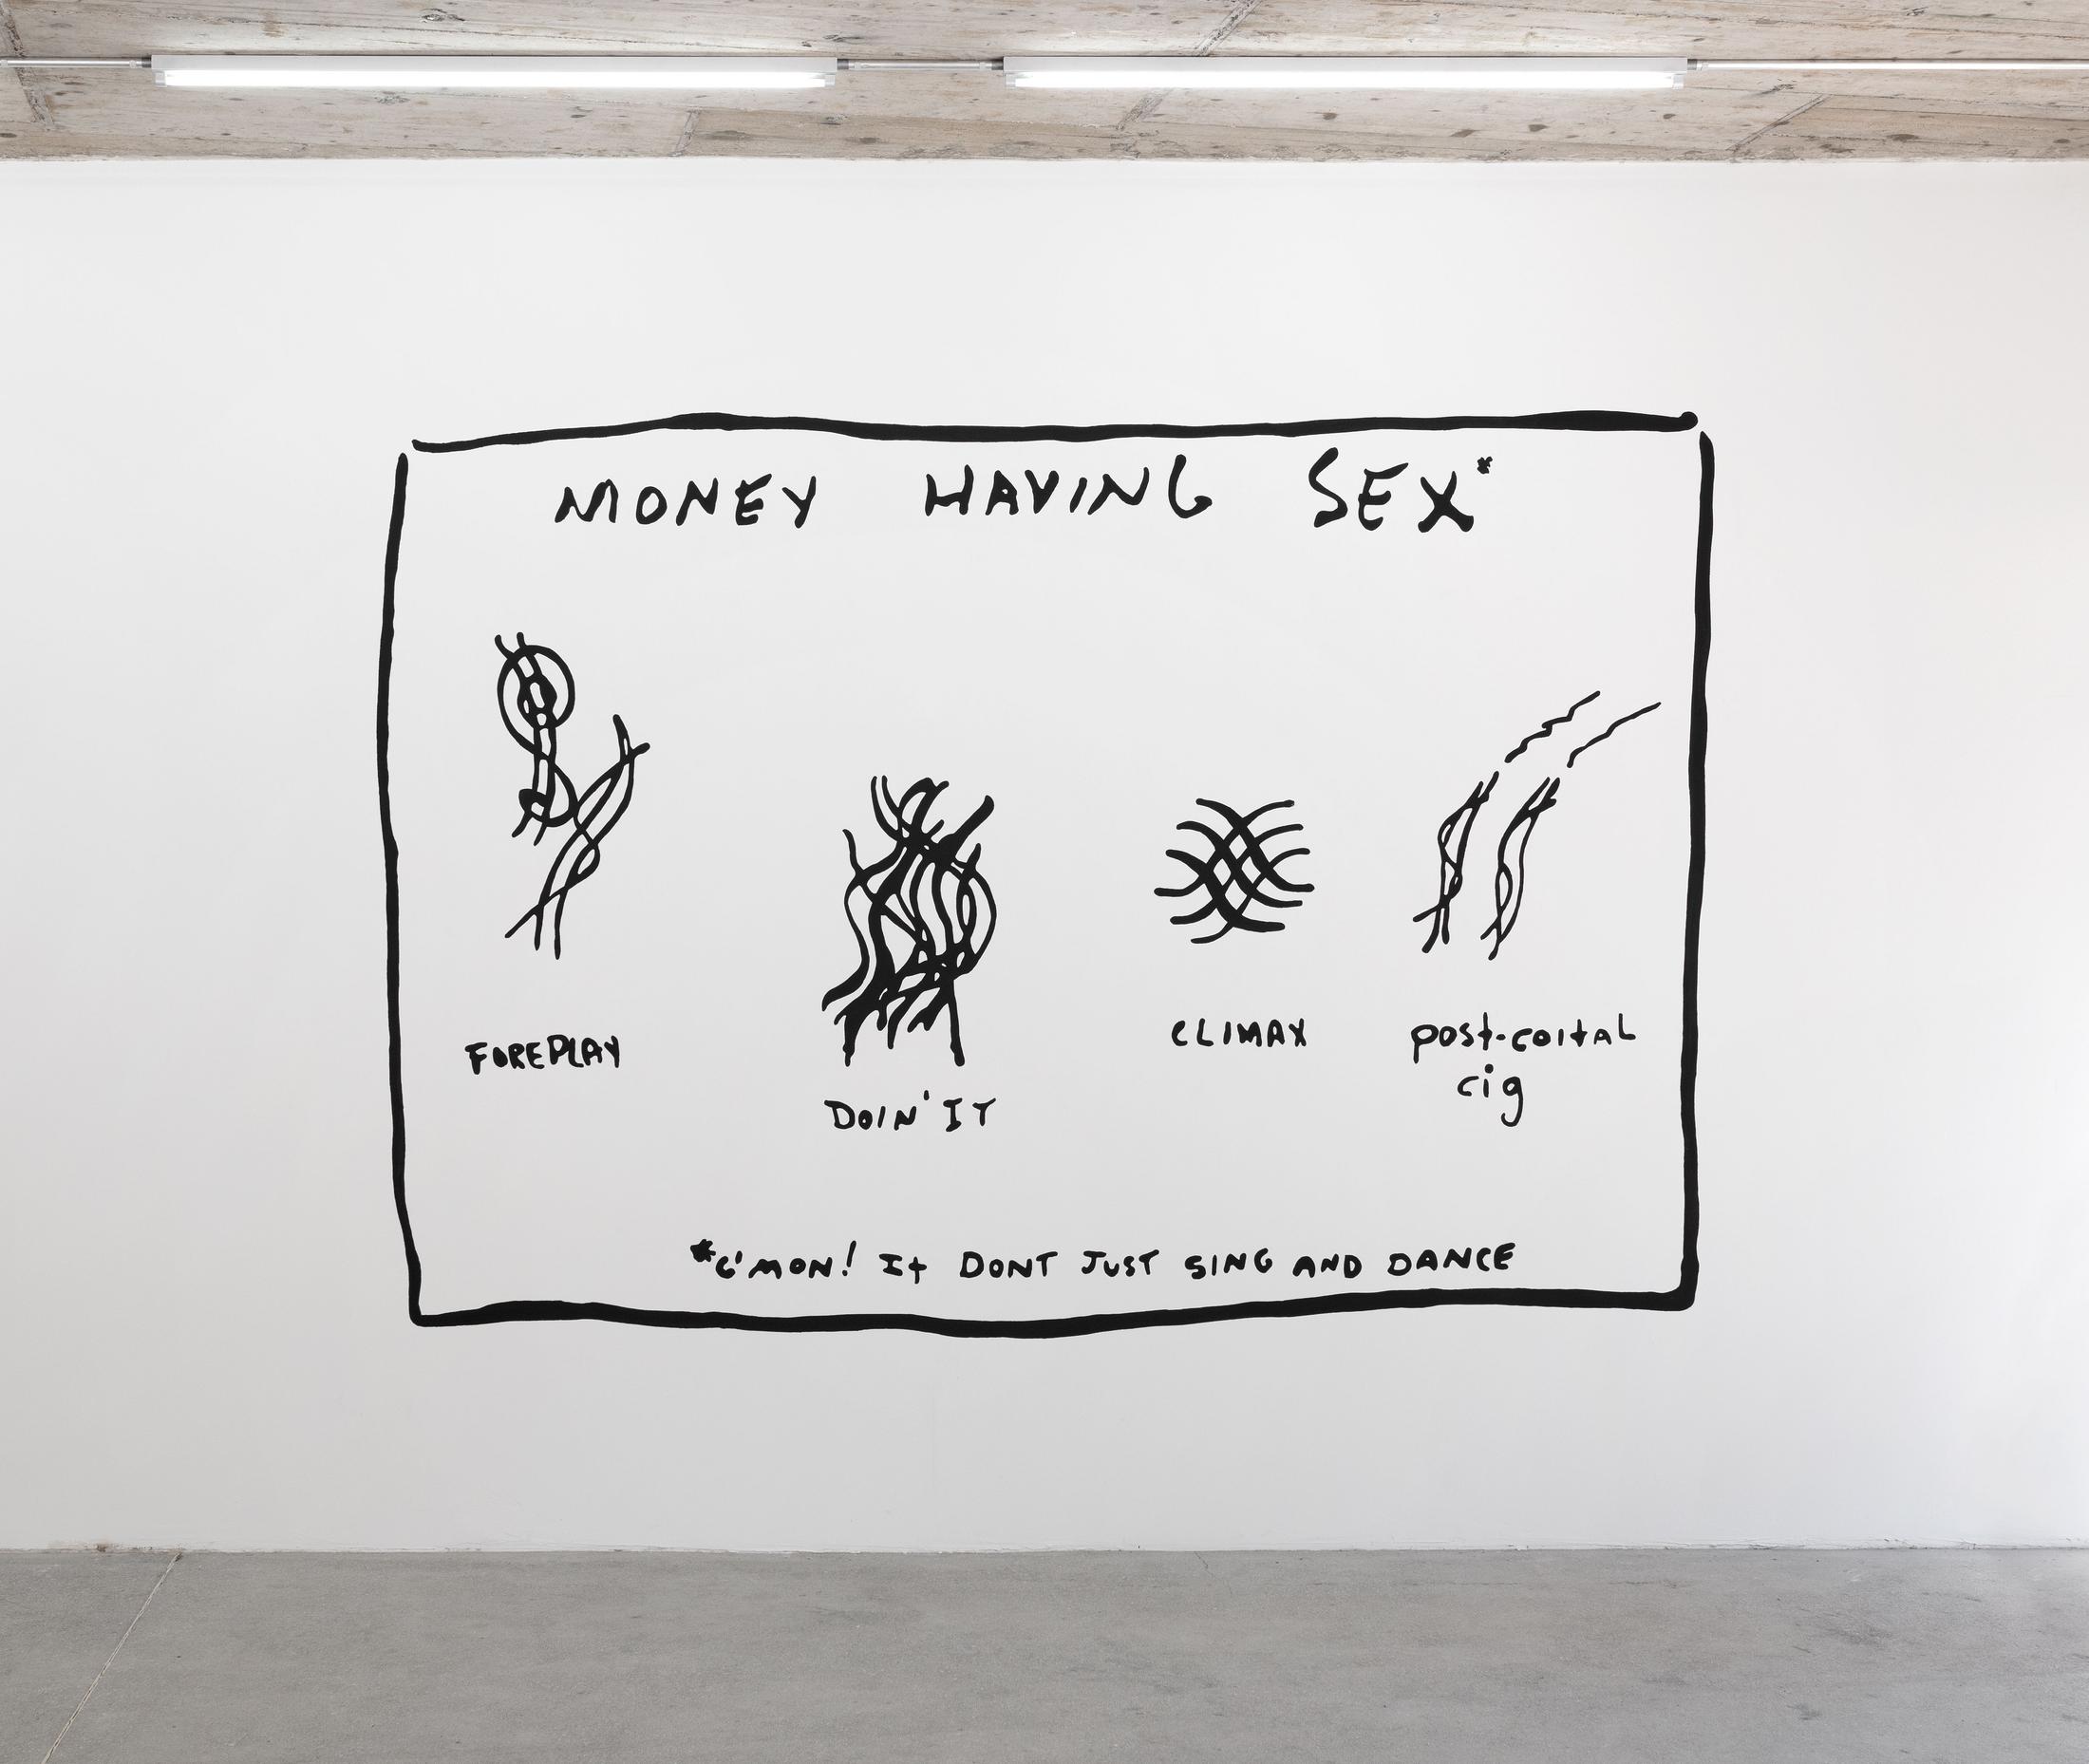 MONEY HAVING SEX*
FOREPLAY
DOIN' IT
CLIMAX
post-coital
cig
*C'MON! It DONT JUST SING AND DANCE